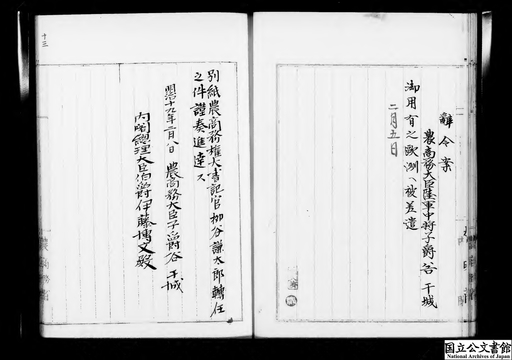 辭令案
農商務大臣陸軍中将子爵谷干城
御用有之歐洲ヘ被差遣
二月五日
十三
別紙農商務権大書記官柳谷謙太郎轉任
之件謹奏進達ス
明治十九年二月八日 農商務大臣子爵谷干城
内閣總理大臣伯爵伊藤博文殿
国立公文書館
National Archives of Japan